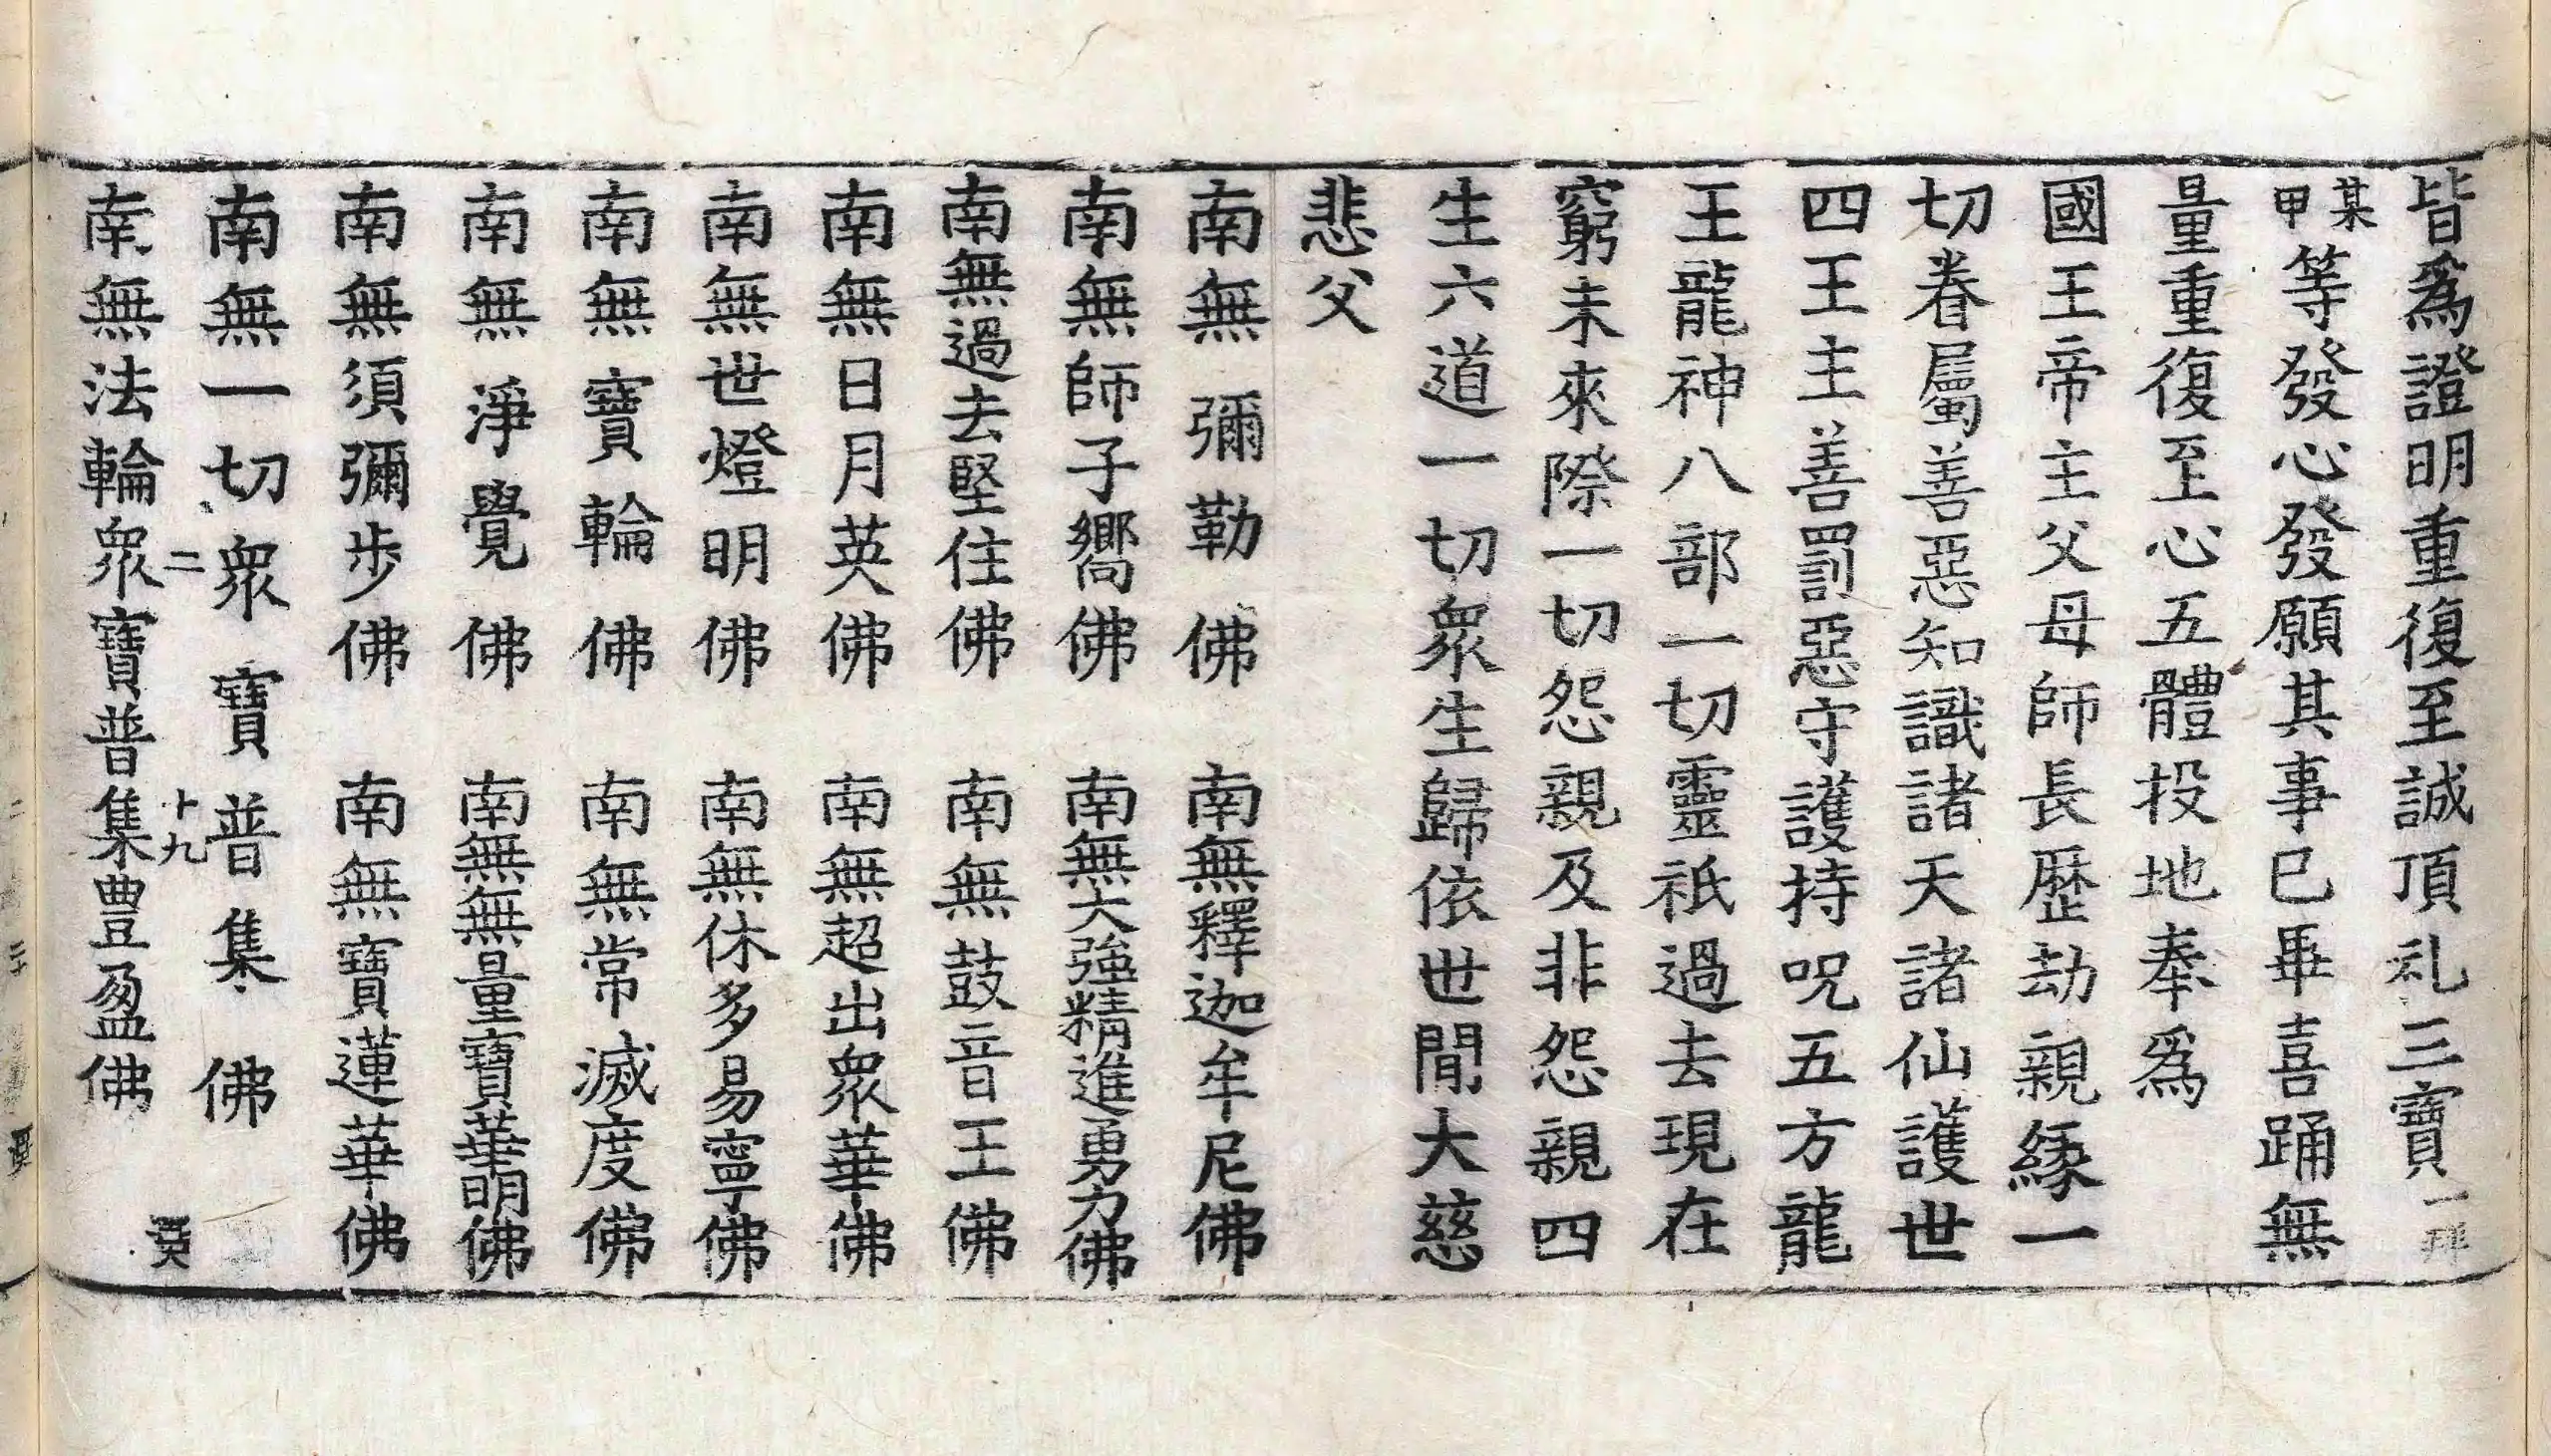 皆爲證明重復至誠頂礼三寶一拜
某甲等發心發願其事已畢喜踊無
量重復至心五體投地奉爲
國王帝主父母師長歷劫親緣一
切眷屬善惡知識諸天諸仙護世
四王主善罰惡守護持呪五方龍
王龍神八部一切靈祇過去現在
窮未來際一切怨親及非怨親四
生六道一切衆生歸依世間大慈
悲父
南無彌勒佛 南無釋迦牟尼佛
南無師子嚮佛 南無大強精進勇力佛
南無過去堅住佛 南無鼓音王佛
南無日月英佛 南無超出衆華佛
南無世燈明佛 南無休多易寧佛
南無寶輪佛 南無常滅度佛
南無淨覺佛 南無無量寶華明佛
南無須彌步佛 南無寶蓮華佛
南無一切衆寶普集佛
二 十九
南無法輪衆寶普集豊盈佛